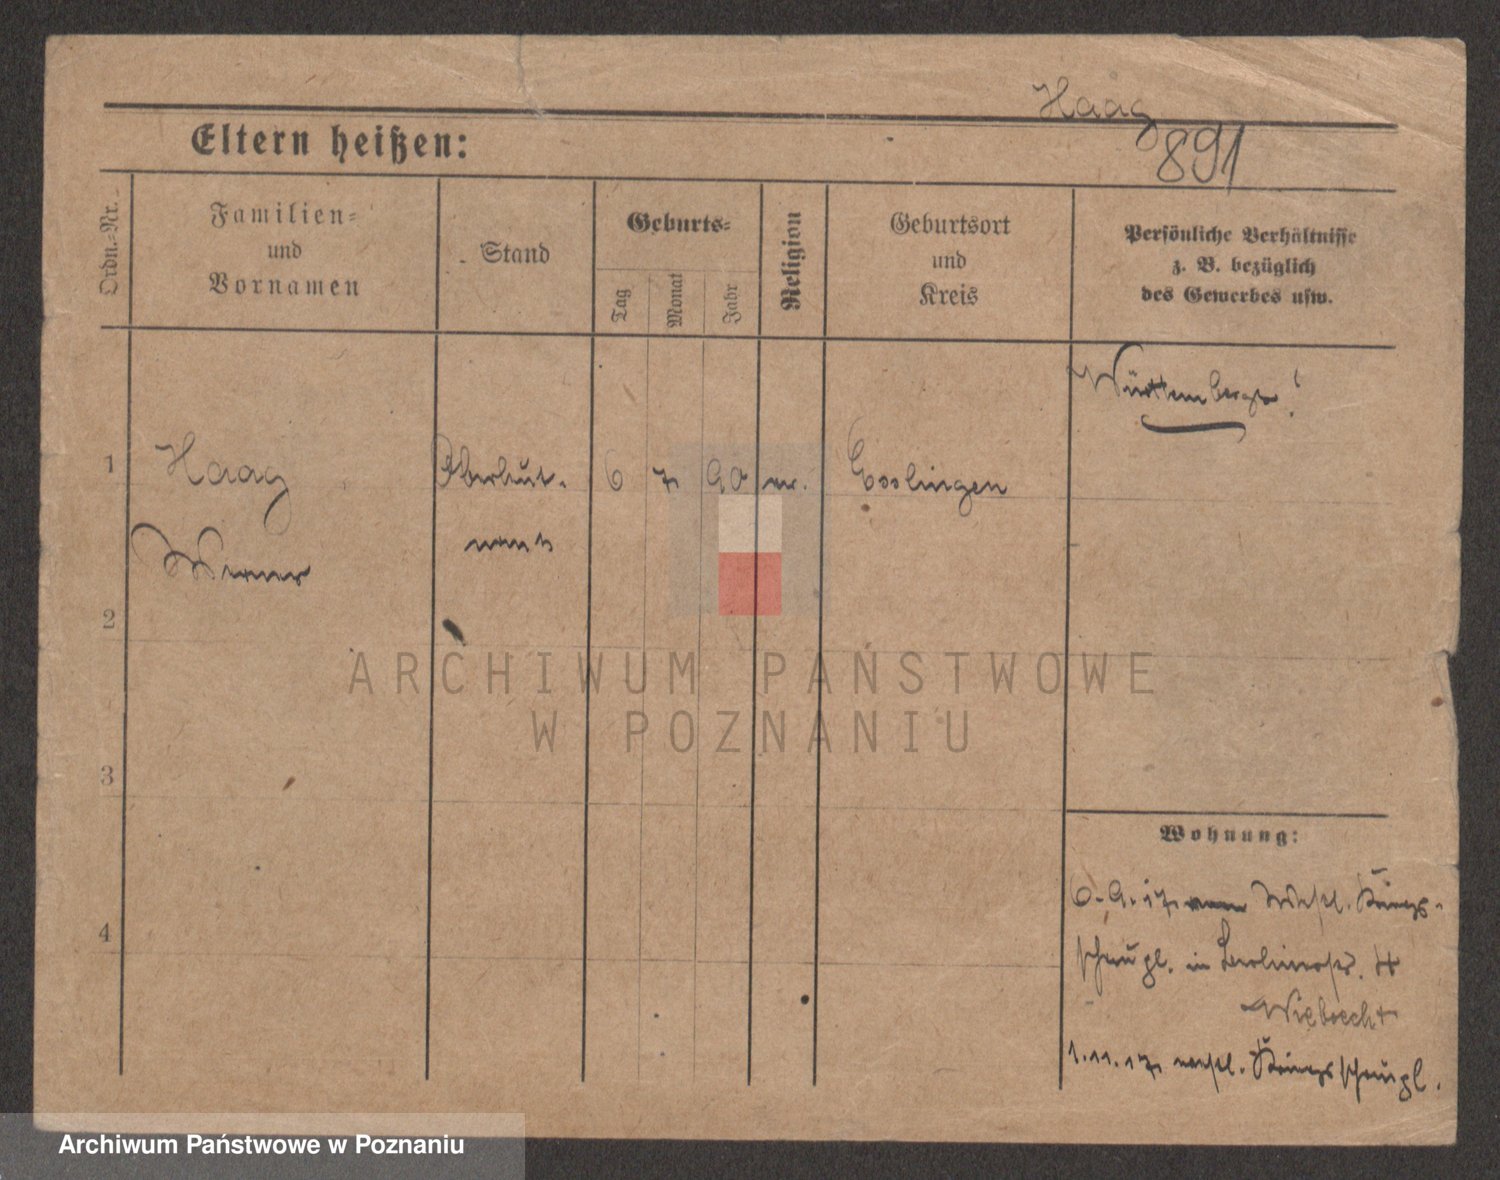 Haag
891
Eltern heißen:
Ordn.-Nr.
Familien-
und
Vornamen
Stand
Geburts-
Tag
Monat
Jahr
Religion
Geburtsort
und
Kreis
Persönliche Verhältnisse
z. B. bezüglich
des Gewerbes usw.
Württemberger!
1 Haag Oberleut- 6 7 90 ev. Esslingen
Werner nant
2
3
4
Wohnung:
6.9.17 westl. Kriegs-
schaupl. in Berlinerstr. 4
Wiebrecht
1.11.17 westl. Kriegsschaupl.
ARCHIWUM PAŃSTWOWE
W POZNANIU
Archiwum Państwowe w Poznaniu